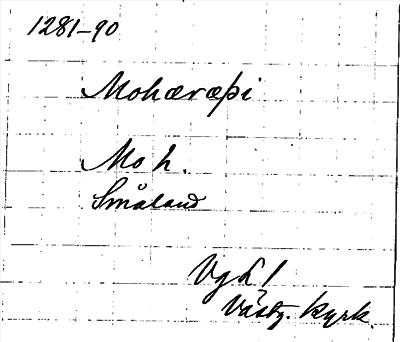 1281-90
Mohæræþi
Mo h.
Småland
VgL 1
Västg. kyrk.